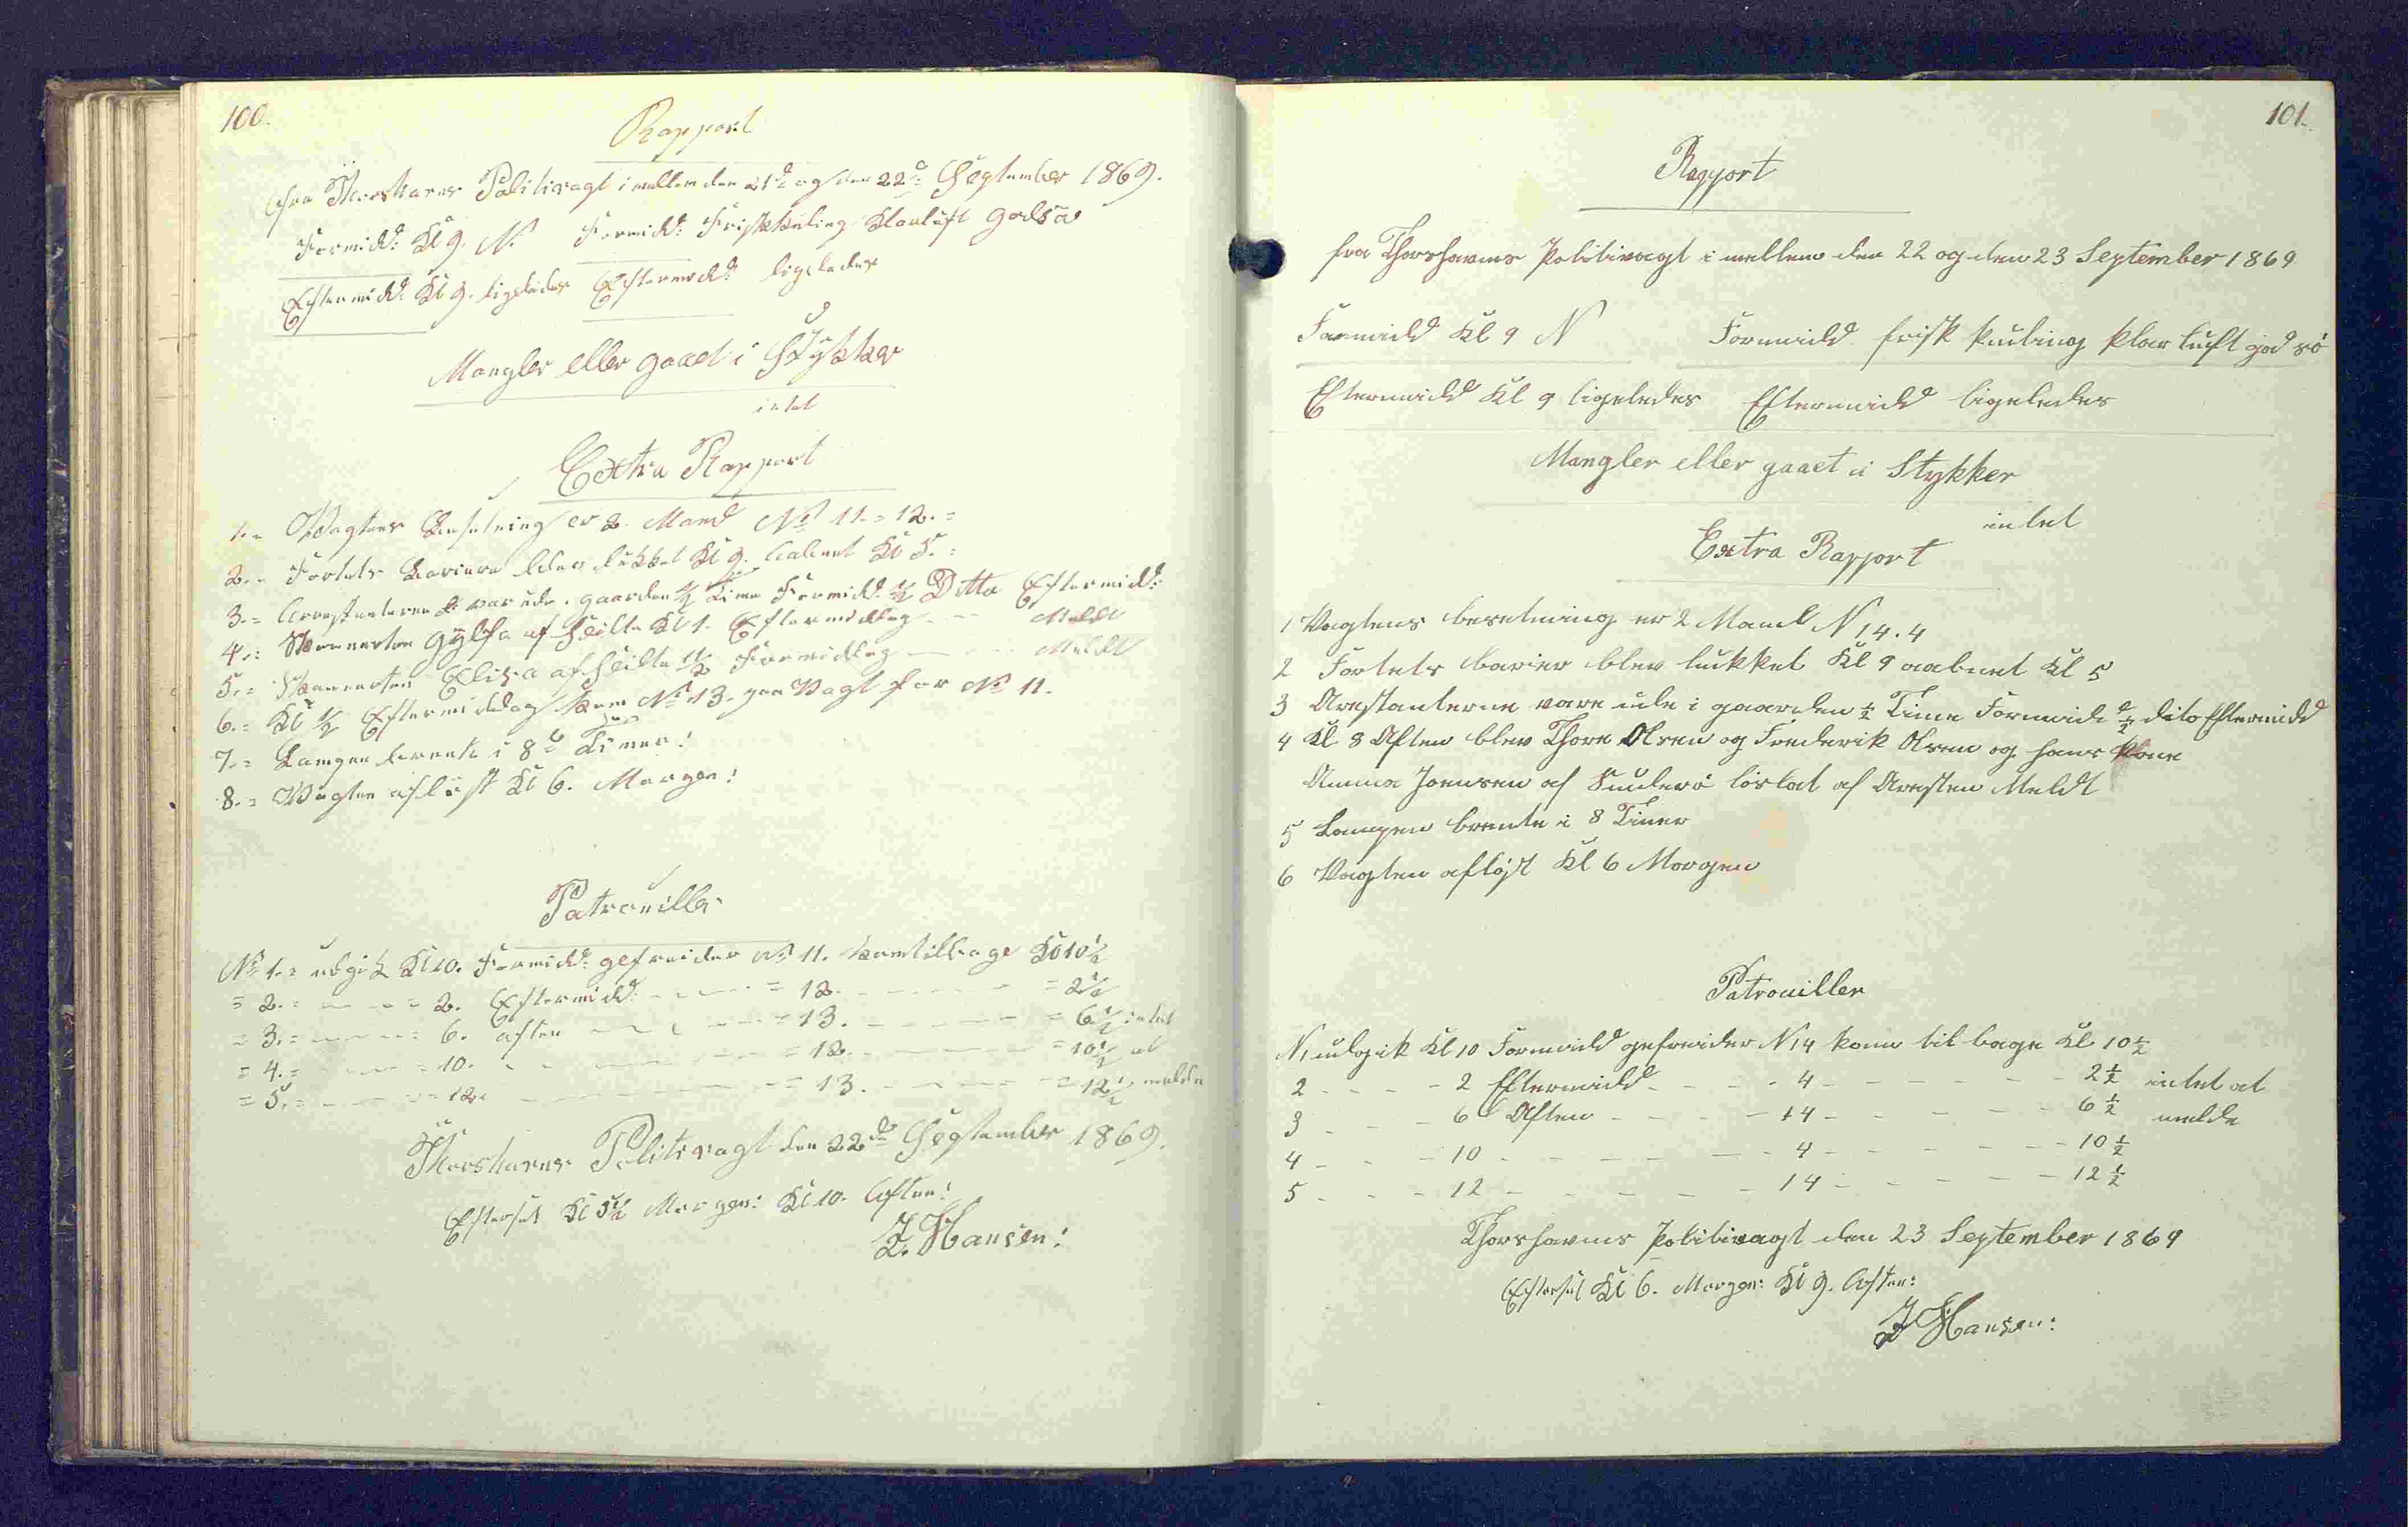 100.
Rapport
fra Thorshavns Politivagt i mellem den 21de og den 22de September 1869.
Formidd: Kl 9. N. Formidd: Frisk Kuling Klarluft godsø
Eftermidd: Kl 9. ligeledes Eftermidd: ligeledes
Mangler eller gaaet i Stykker
intet
Extra Rapport
1. = Wagtens Besetning er 2. Mand No 11. = 12. =
2. = Fortets Bariere blev lukket Kl 9. aabnet Kl 5. =
3. = Arrestanterne var ude i gaarden 1/2 Time Formidd. 1/2 Ditto Eftermidd:
4. = Skonnerten Gylfa afseilte Kl 1. Eftermiddag - - Meldt
5. = Skonnerten Elisa afseilte 11 1/2 Formiddag - - - Meldt
6. = Kl 1/2 Eftermiddag kom No 13. paa Vagt for No 11.
7. = Lampen brente i 8te Timer!
8. = Wagten afløst Kl 6. Morgen!
Patrouiller
No 1. = udgik Kl 10. Formidd: gefreider No 11. kom tilbage Kl 10 1/2
= 2. = - - = 2. Eftermidd: - - - = 12. - - - = 2 1/2
= 3. = - - = 6. aften - - - = 13. - - - = 6 1/2 intet
= 4. = - - = 10. - - - = 12. - - - = 10 1/2 at
= 5. = - - = 12. - - - = 13. - - - = 12 1/2 melde
Thorshavns Politivagt den 22de September 1869.
Efterset Kl 5 1/2 Morgen: Kl 10. Aften!
J. Hansen:
101.
Rapport
fra Thorshavns Politivagt i mellem den 22 og den 23 September 1869
Formidd Kl 9 N Formidd frisk kuling klar luft god sø
Eftermidd Kl 9 ligeledes Eftermidd ligeledes
Mangler eller gaaet i Stykker
intet
Extra Rapport
1 Vagtens besetning er 2 Mand N 14. 4
2 Fortets barier blev lukket Kl 9 aabnet Kl 5
3 Arestanterne vare ude i gaarden 1/2 Time Formidd 1/2 dito Eftermidd
4 Kl 8 Aften blev Thore Olsen og Frederik Olsen og hans kone
Anna Joensen af Suderø løslat af Aresten Meldt
5 Lampen brente i 8 Timer
6 Vagten afløst Kl 6 Morgen
Patrouiller
N 1 udgik Kl 10 Formidd gefreider N 14 kom til bage Kl 10 1/2
2 - - - 2 Eftermidd - - - 4 - - - - 2 1/2 intet at
3 - - - 6 Aften - - - 14 - - - - 6 1/2 melde
4 - - - 10 - - - - 4 - - - - 10 1/2
5 - - - 12 - - - - 14 - - - - 12 1/2
Thorshavns Politivagt den 23 September 1869
Efterset Kl 6. Morgen: Kl 9. Aften:
J Hansen: